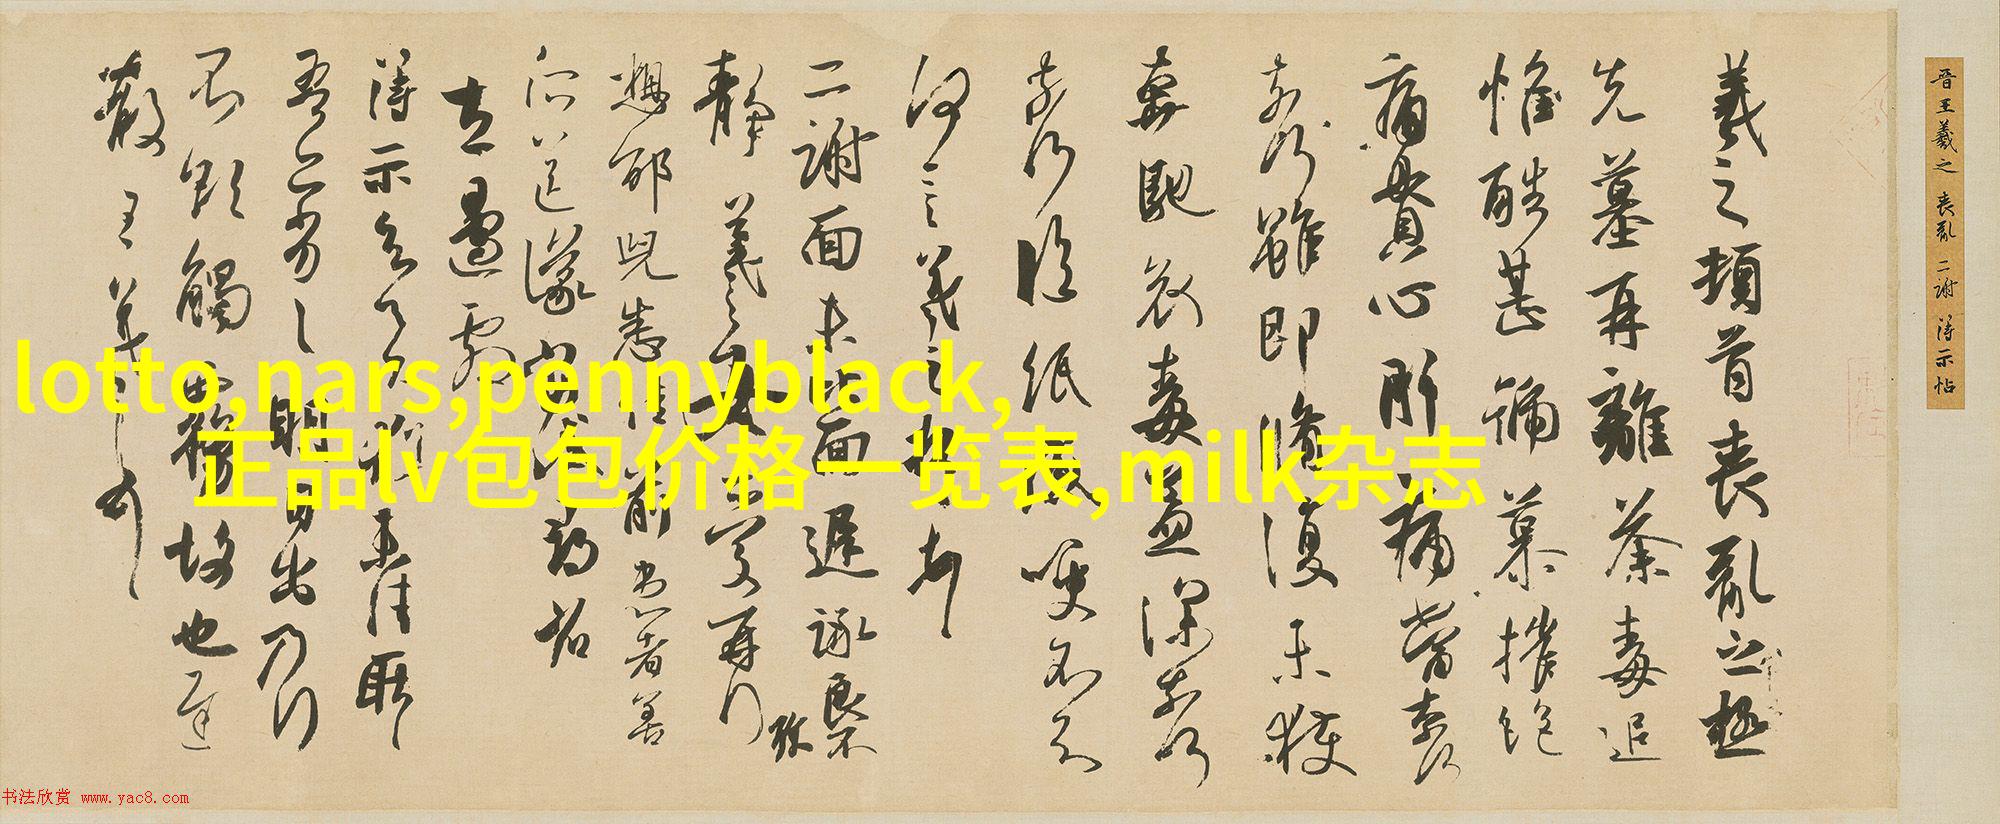 晋王羲之 喪亂 二謝 得示帖
羲之頓首喪亂之極
先墓再離荼毒追
惟酷甚號慕摧絕
痛貫心肝痛當奈何
奈何雖即脩復未獲
奔馳哀毒益深奈何
奈何臨紙感哽不知
何言羲之頓首頓首
二謝面未比面遲詠良不
靜羲之女愛再拜
想邵兒悉佳前患者善
左邊劇
得示知足下猶未佳耿耿
吾亦劣劣明日出乃行
不欲觸霧故也遲
散王羲之頓首
lotto,nars,pennyblack,
正品lv包包价格一览表,milk杂志
书法欣赏 www.yac8.com